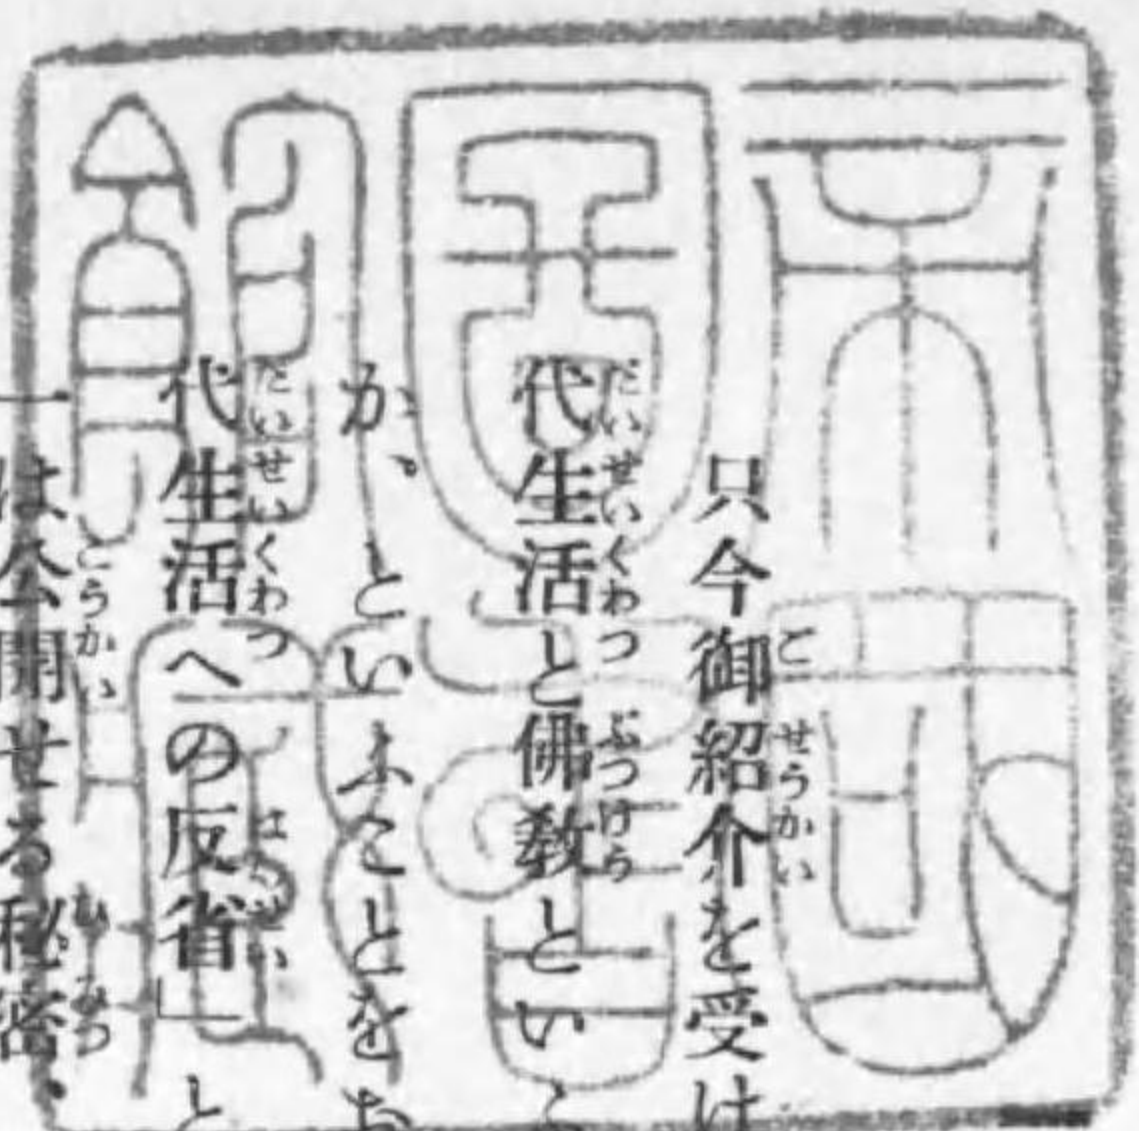 只今御紹介を受け
代生活と佛教といふ
か、といふことをお
代生活への反省」と
一は公開せる秘密、
帝國圖書館藏